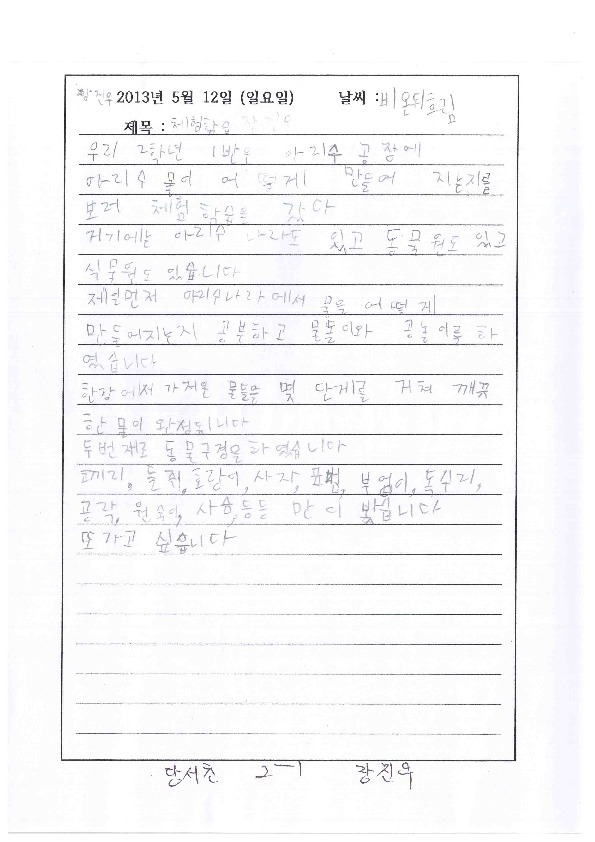 장진우 2013년 5월 12일 (일요일) 날씨 : 비온뒤흐림
제목 : 체험학습 장진우
우리 2학년 1반은 아리수 공장에
아리수 물이 어떻게 만들어 지는지를
보러 체험 학습을 갔다
거기에는 아리수 나라도 있고 동물원도 있고
식물원도 있습니다
제일먼저 아리수나라에서 물을 어떻게
만들어지는지 공부하고 물놀이와 공놀이를 하
였습니다
한강에서 가져온 물들을 몇 단계를 거쳐 깨끗
한 물이 완성됩니다
두번째로 동물구경을 하였습니다
코끼리, 들쥐, 호랑이, 사자, 표범, 부엉이, 독수리,
공작, 원숭이, 사슴,등등 만이 봤습니다
또 가고 싶습니다
당서초 2-1 장진우